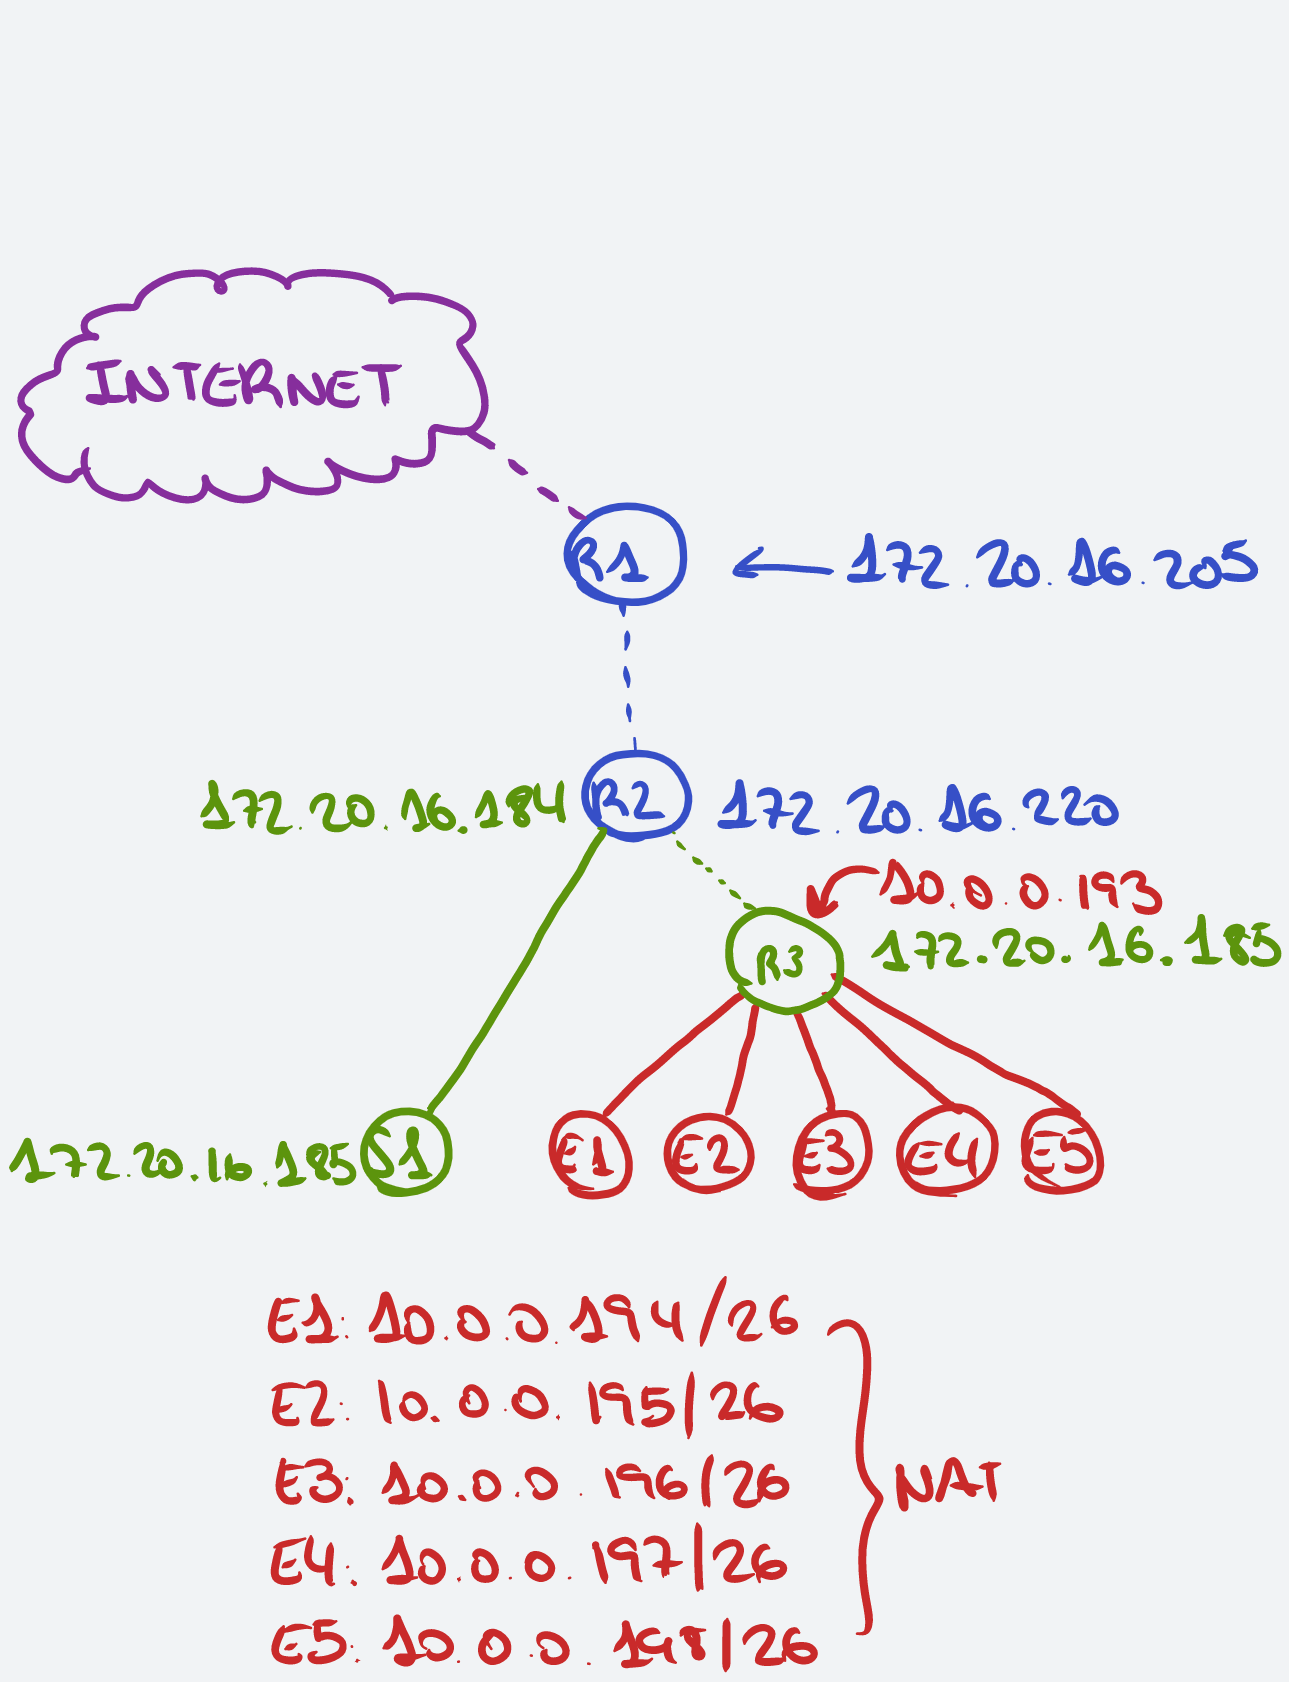 INTERNET
R1
172.20.16.205
172.20.16.184
R2
172.20.16.220
10.0.0.193
R3
172.20.16.185
172.20.16.185
S1
E1
E2
E3
E4
E5
E1: 10.0.0.194/26
E2: 10.0.0.195/26
E3: 10.0.0.196/26
E4: 10.0.0.197/26
E5: 10.0.0.198/26
NAT